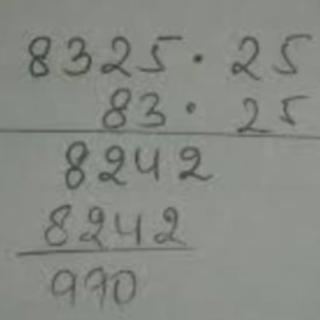 8325. 25
83. 25
8242
8242
990